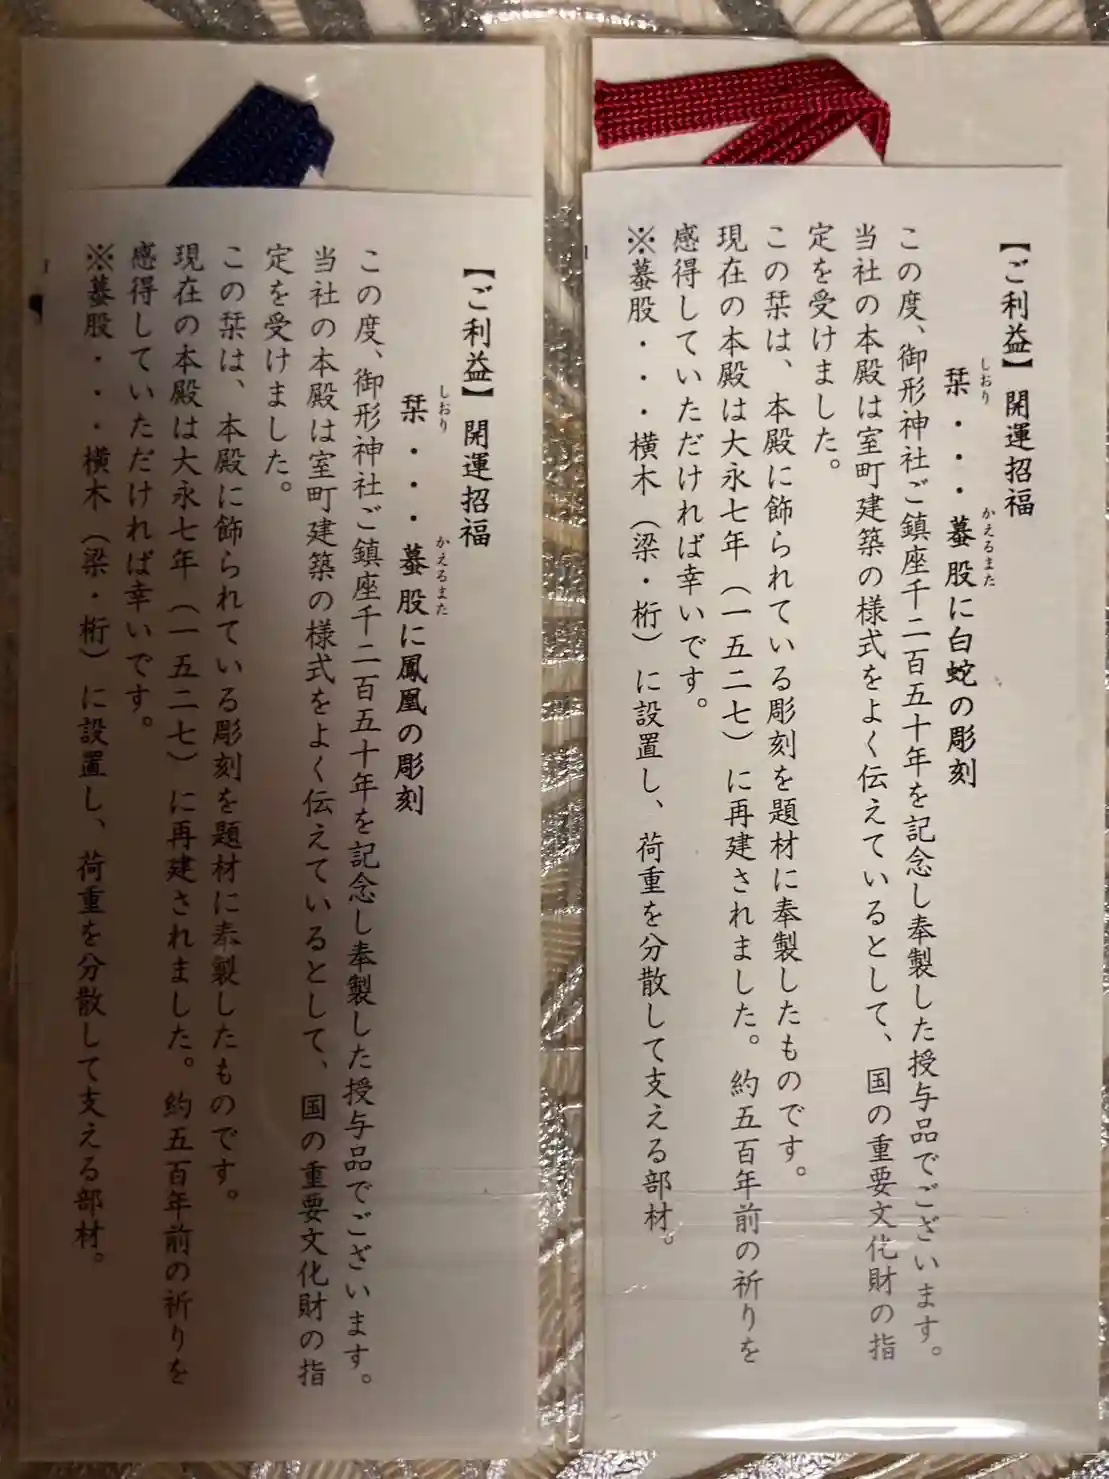 【ご利益】開運招福
栞・・・蟇股に白蛇の彫刻
しおり
かえるまた
この度、御形神社ご鎮座千二百五十年を記念し奉製した授与品でございます。
当社の本殿は室町建築の様式をよく伝えているとして、国の重要文化財の指
定を受けました。
この栞は、本殿に飾られている彫刻を題材に奉製したものです。
現在の本殿は大永七年（一五二七）に再建されました。約五百年前の祈りを
感得していただければ幸いです。
※蟇股・・・横木（梁・桁）に設置し、荷重を分散して支える部材。
【ご利益】開運招福
栞・・・蟇股に鳳凰の彫刻
しおり
かえるまた
この度、御形神社ご鎮座千二百五十年を記念し奉製した授与品でございます。
当社の本殿は室町建築の様式をよく伝えているとして、国の重要文化財の指
定を受けました。
この栞は、本殿に飾られている彫刻を題材に奉製したものです。
現在の本殿は大永七年（一五二七）に再建されました。約五百年前の祈りを
感得していただければ幸いです。
※蟇股・・・横木（梁・桁）に設置し、荷重を分散して支える部材。